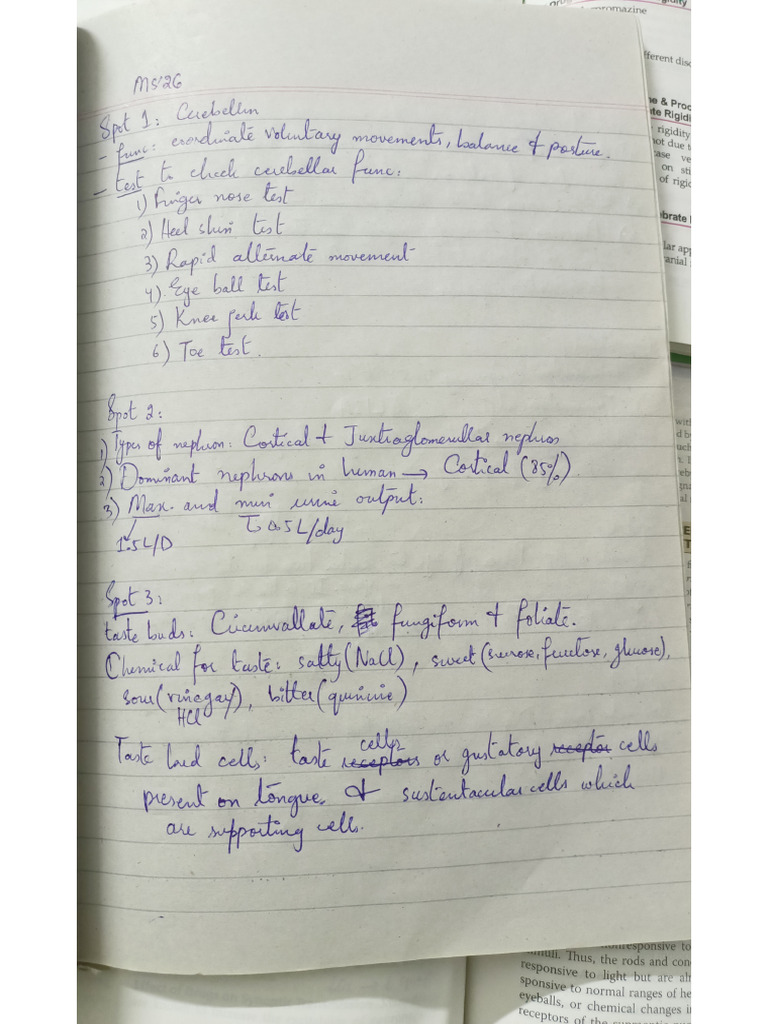 MS'26
Spot 1: Cerebellum
- func: coordinate voluntary movements, balance & posture.
- test to check cerebellar func:
1) Finger nose test
2) Heel shin test
3) Rapid alternate movement
4) Eye ball test
5) Knee jerk test
6) Toe test.
Spot 2:
1) Types of nephron: Cortical & Juxtraglomerullar nephron
2) Dominant nephrons in human → Cortical (85%)
3) Max. and min urine output:
1.5L/D 0.5L/day
Spot 3:
taste buds: Circumvallate, fungiform & foliate.
Chemical for taste: salty (NaCl), sweet (sucrose, fructose, glucose),
sour (vinegar), bitter (quinine)
HCl
cells
Taste bud cells: taste receptors or gustatory receptor cells
present on tongue, & sustentacular cells which
are supporting cells.
promazine
fferent disc
e & Proc
te Rigidi
rigidity
not due t
ase ve
on sti
of rigid
ebrate
lar app
ranial
with
nonresponsive to
muli. Thus, the rods and con
responsive to light but are alm
sponsive to normal ranges of he
eyeballs, or chemical changes i
receptors of the